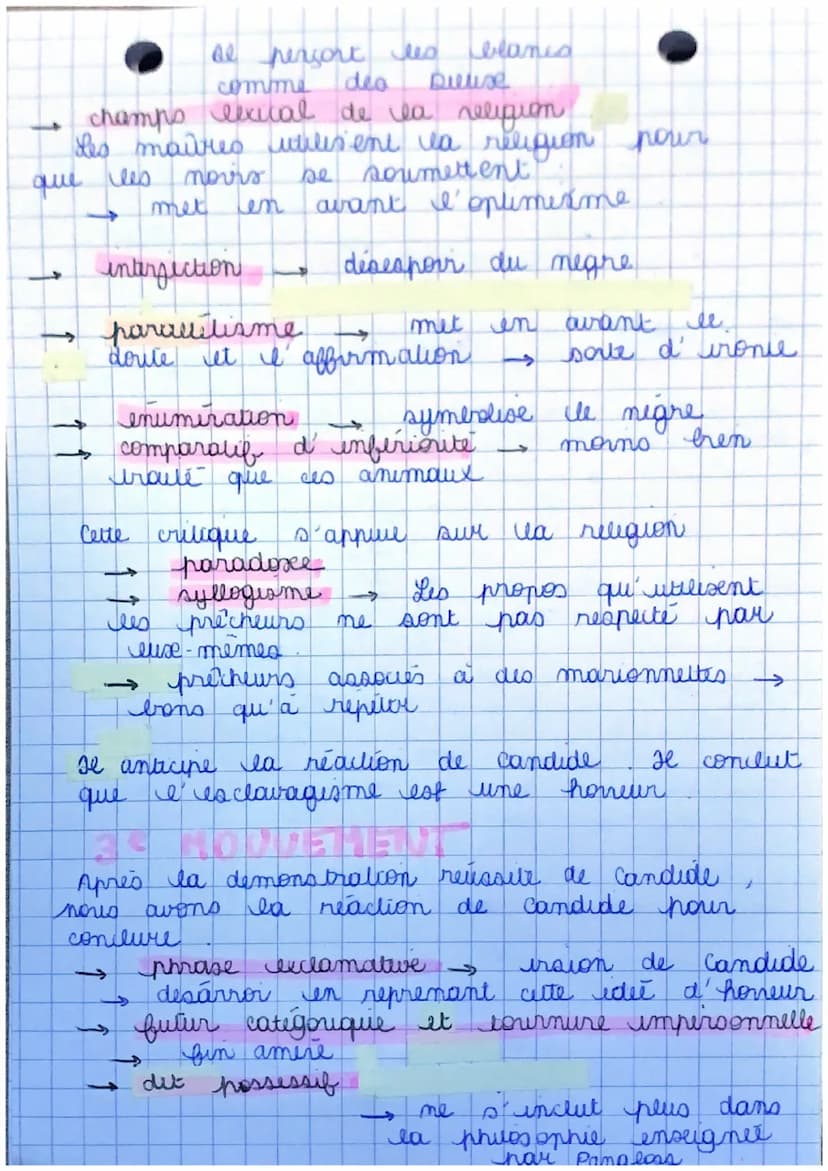 Il perçoit les blancs
comme des Dieux
→ champs lexical de la religion
Les maîtres utilisent la religion pour
que les noirs se soumettent
→ met en avant l'optimisme
→ interjection → désespoir du negre
→ parallélisme → met en avant le
doute et l'affirmation → sorte d'ironie
→ énumération → symbolise le nègre
→ comparatif d'infériorité → moins bien
traité que les animaux
Cette critique s'appuie sur la religion
→ paradoxe
→ syllogisme → Les propos qu'utilisent
les prêcheurs ne sont pas respecté par
eux-mêmes.
→ prêcheurs associés à des marionnettes →
bons qu'à répéter
Il anticipe la réaction de Candide. Il conclut
que l'esclavagisme est une horreur.
3e MOUVEMENT
Après la demonstration réussite de Candide,
nous avons la réaction de Candide pour
conclure.
→ phrase exclamative → de Candide
→ désarroi en reprenant cette idée d'horreur
→ futur catégorique et tournure impersonnelle
→ fin amère
→ det possessif
→ ne s'inclut plus dans
la philosophie enseignée
par Pangloss